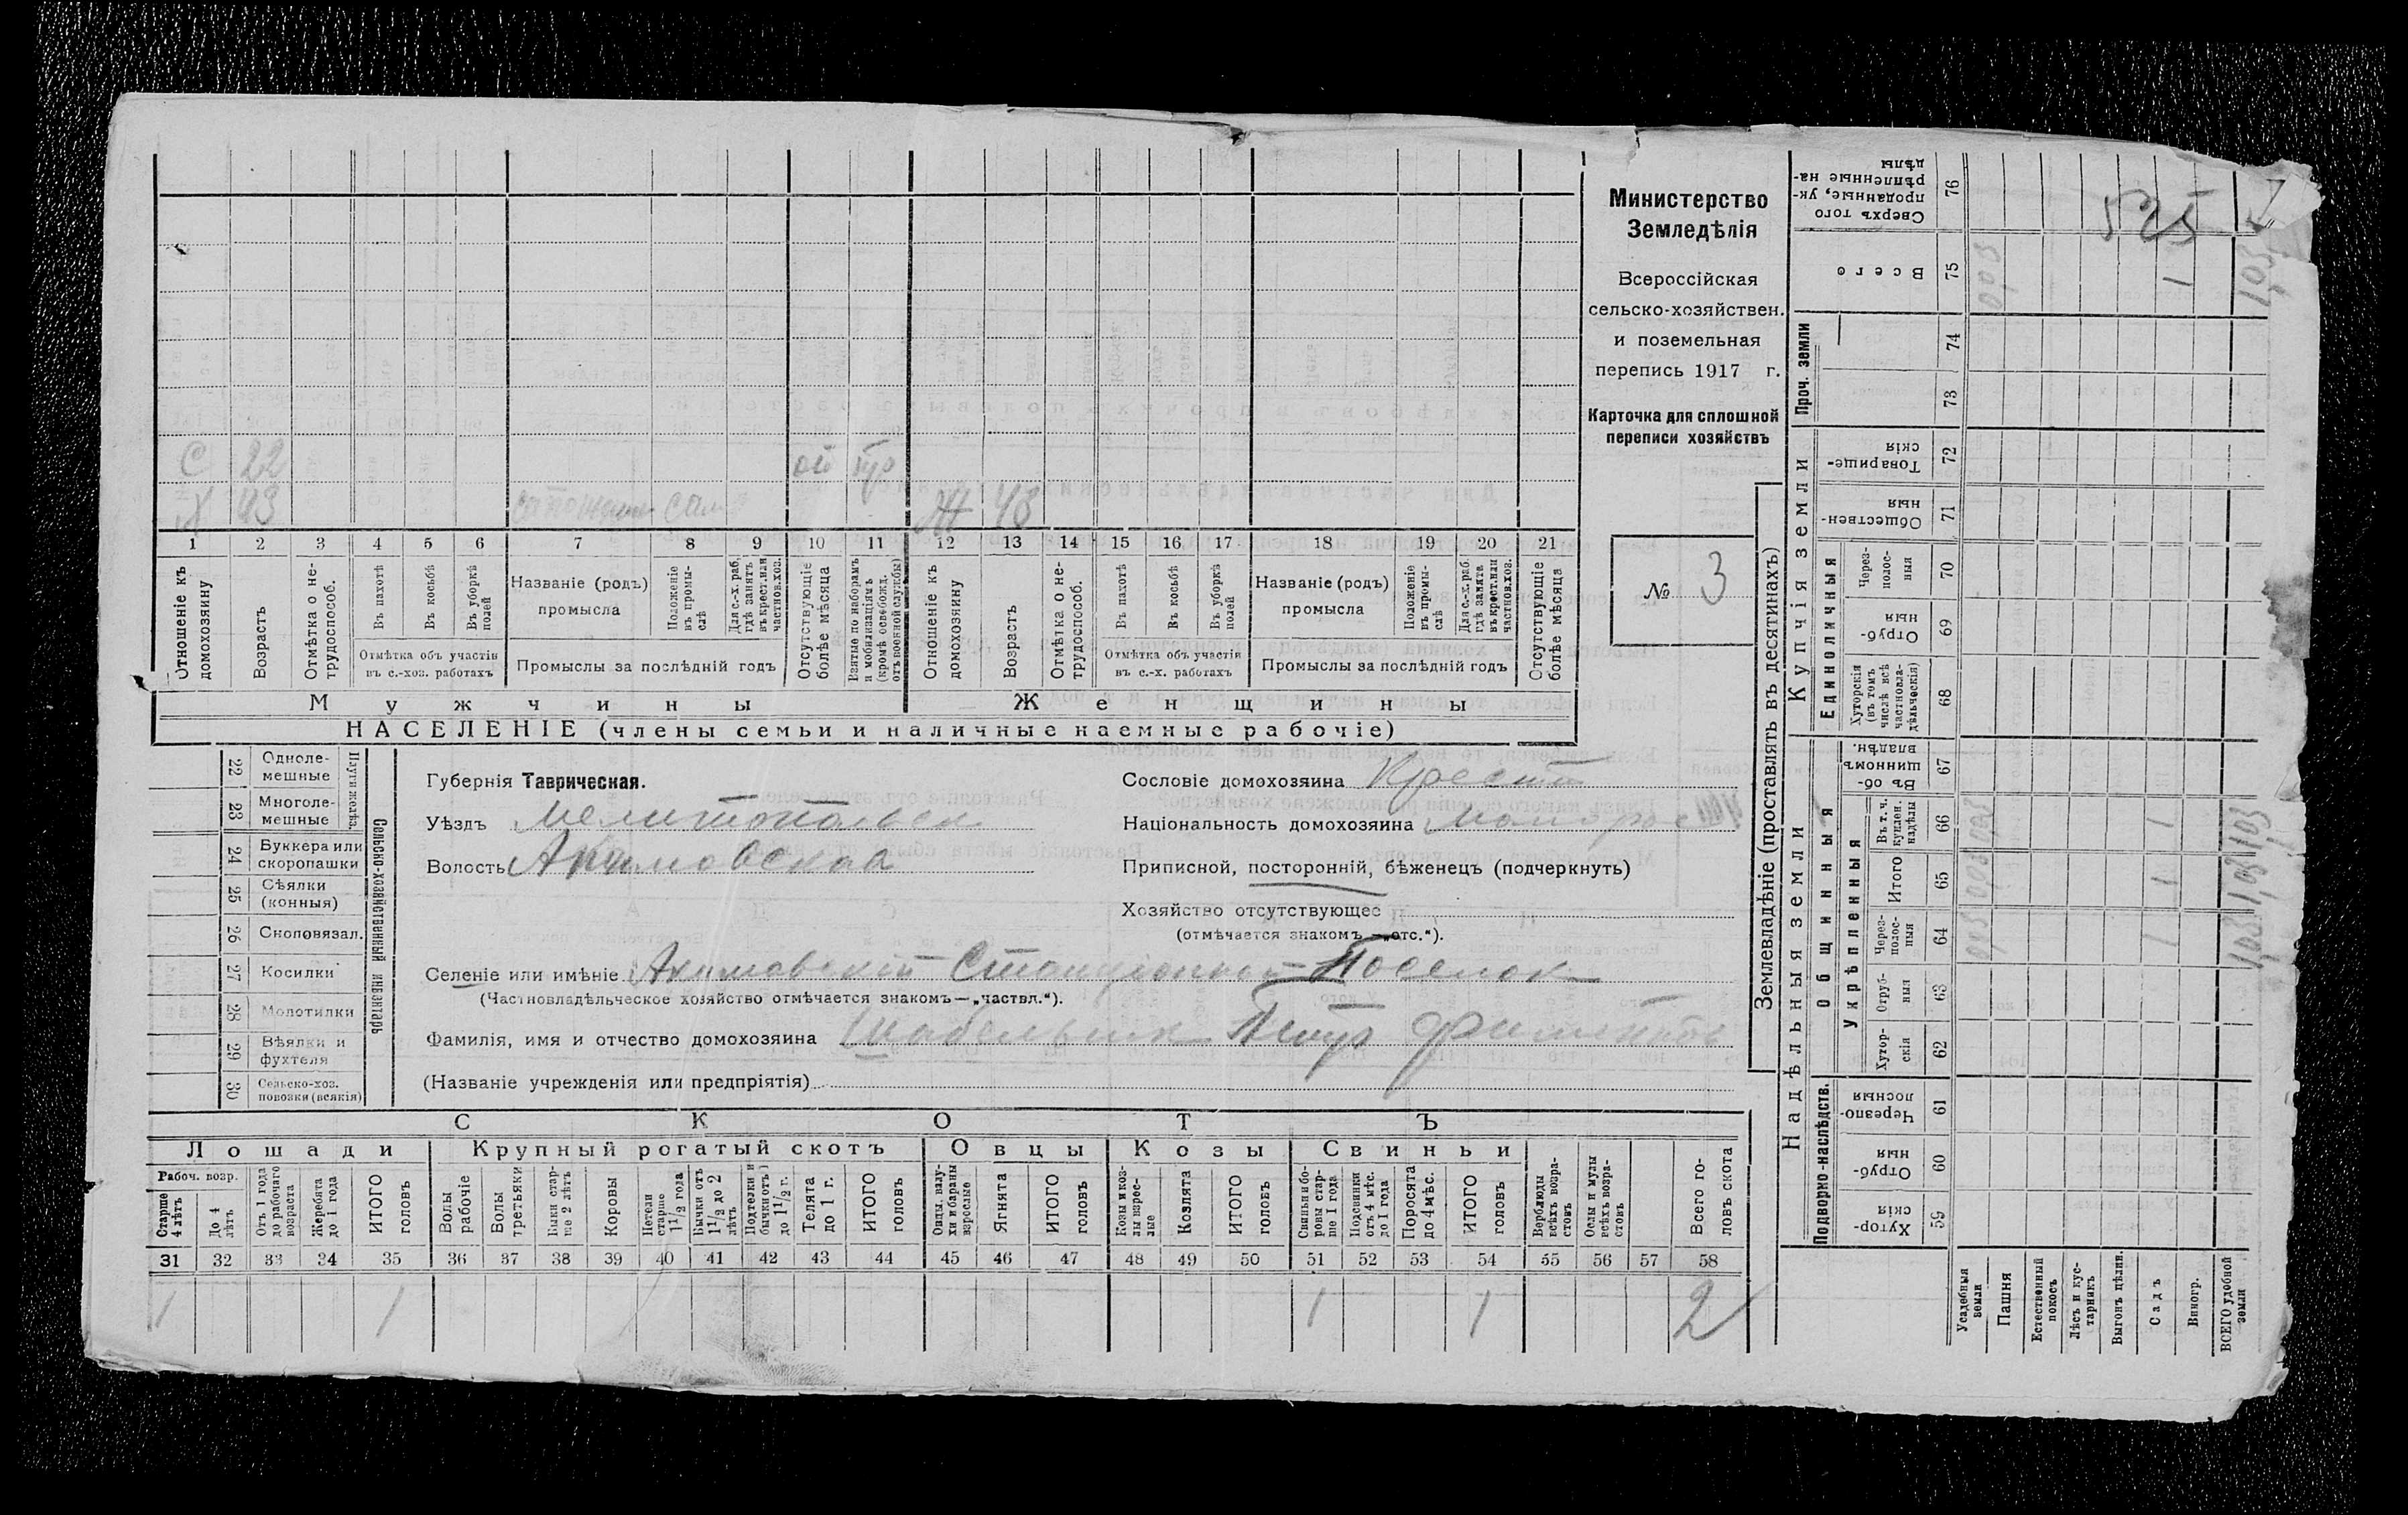 С 22 от
Х 43 сам Ж 48
1 2 3 4 5 6 7 8 9 10 11 12 13 14 15 16 17 18 19 20 21
Отношеніе къ домохозяину
Возрастъ
Отмѣтка о не-трудоспособ.
Въ пахотѣ
Въ косьбѣ
Въ уборкѣ полей
Отмѣтка объ участіи въ с.-хоз. работахъ
Названіе (родъ) промысла
Положеніе въ промы-слѣ
Для с.-х. раб. гдѣ занятъ въ крест. или частнов. хоз.
Промыслы за послѣдній годъ
Отсутствующіе болѣе мѣсяца
Взятые по наборамъ и мобилизаціямъ (кромѣ освобожд. отъ военной службы)
Отношеніе къ домохозяину
Возрастъ
Отмѣтка о не-трудоспособ.
Въ пахотѣ
Въ косьбѣ
Въ уборкѣ полей
Отмѣтка объ участіи въ с.-х. работахъ
Названіе (родъ) промысла
Положеніе въ промы-слѣ
Для с.-х. раб. гдѣ занята въ крест. или частнов. хоз.
Промыслы за послѣдній годъ
Отсутствующіе болѣе мѣсяца
Мужчины Женщины
НАСЕЛЕНІЕ (члены семьи и наличные наемные рабочіе)
Министерство
Земледѣлія
Всероссійская
сельско-хозяйствен.
и поземельная
перепись 1917 г.
Карточка для сплошной
переписи хозяйствъ
№ 3
22 Одноле-мешные
23 Многоле-мешные
Плуги желѣз.
24 Буккера или скоропашки
25 Сѣялки (конныя)
26 Сноповязал.
27 Косилки
28 Молотилки
29 Вѣялки и фухтеля
30 Сельско-хоз. повозки (всякія)
Сельско-хозяйственный инвентарь
Губернія Таврическая.
Уѣздъ Мелитопольск
Волость Акимовская
Сословіе домохозяина Крестн
Національность домохозяина Малорос
Приписной, посторонній, бѣженецъ (подчеркнуть)
Хозяйство отсутствующее
(отмѣчается знакомъ — „отс.“).
Селеніе или имѣніе Акимовскій Станціонный Поселок
(Частновладѣльческое хозяйство отмѣчается знакомъ — „частвл.“).
Фамилія, имя и отчество домохозяина Шабельник Петр
(Названіе учрежденія или предпріятія)
СКОТЪ
Лошади Крупный рогатый скотъ Овцы Козы Свиньи
Рабоч. возр.
Старше 4 лѣтъ
До 4 лѣтъ
Отъ 1 года до рабочаго возраста
Жеребята до 1 года
ИТОГО головъ
Волы рабочіе
Волы третьяки
Быки стар-ше 2 лѣтъ
Коровы
Нетели старше 1 1/2 года
Бычки отъ 1 1/2 до 2 лѣтъ
Подтелки и бычки отъ 1 до 1 1/2 г.
Телята до 1 г.
ИТОГО головъ
Овцы, валу-хи и бараны взрослые
Ягнята
ИТОГО головъ
Козы и коз-лы взрос-лые
Козлята
ИТОГО головъ
Свиньи и бо-ровы стар-ше 1 года
Подсвинки отъ 4 мѣс. до 1 года
Поросята до 4 мѣс.
ИТОГО головъ
Верблюды всѣхъ возра-стовъ
Ослы и мулы всѣхъ возра-стовъ
Всего го-ловъ скота
31 32 33 34 35 36 37 38 39 40 41 42 43 44 45 46 47 48 49 50 51 52 53 54 55 56 57 58
1 1 1 1 2
Землевладѣніе (проставлять въ десятинахъ)
Надѣльныя земли
Купчія земли
Проч. земли
Подворно-наслѣдств.
Общинныя
Укрѣпленныя
Единоличныя
Хутор-скія 59
Отруб-ныя 60
Черезпо-лосныя 61
Хутор-скія 62
Отруб-ныя 63
Через-полос-ныя 64
Итого 65
Въ т. ч. куплен. надѣлы 66
Въ об-щинномъ владѣн. 67
Хуторскія (въ томъ числѣ всѣ частновла-дѣльческія) 68
Отруб-ныя 69
Через-полос-ныя 70
Обществен-ныя 71
Товарище-скія 72
73
74
Всего 75
Сверхъ того проданные, ук-рѣпленные на-дѣлы 76
525
Усадебныя земли
Пашня
Естественный покосъ
Лѣсъ и кус-тарникъ
Выгонъ цѣлин.
Садъ
Виногр.
ВСЕГО удобной земли